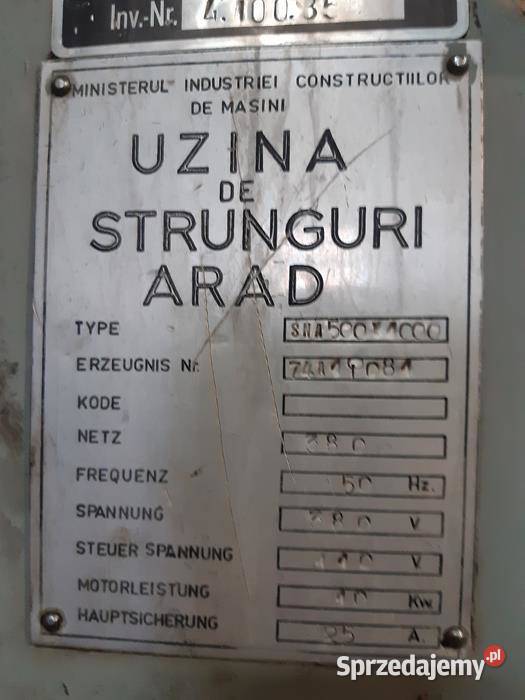 Inv.-Nr. 4.100.35
MINISTERUL INDUSTRIEI CONSTRUCTIILOR
DE MASINI
UZINA
DE
STRUNGURI
ARAD
TYPE SNA500X1000
ERZEUGNIS Nr.
KODE
NETZ 380
FREQUENZ 50 Hz.
SPANNUNG 380 V
STEUER SPANNUNG 110 V.
MOTORLEISTUNG 10 Kw.
HAUPTSICHERUNG A.
Sprzedajemy.pl